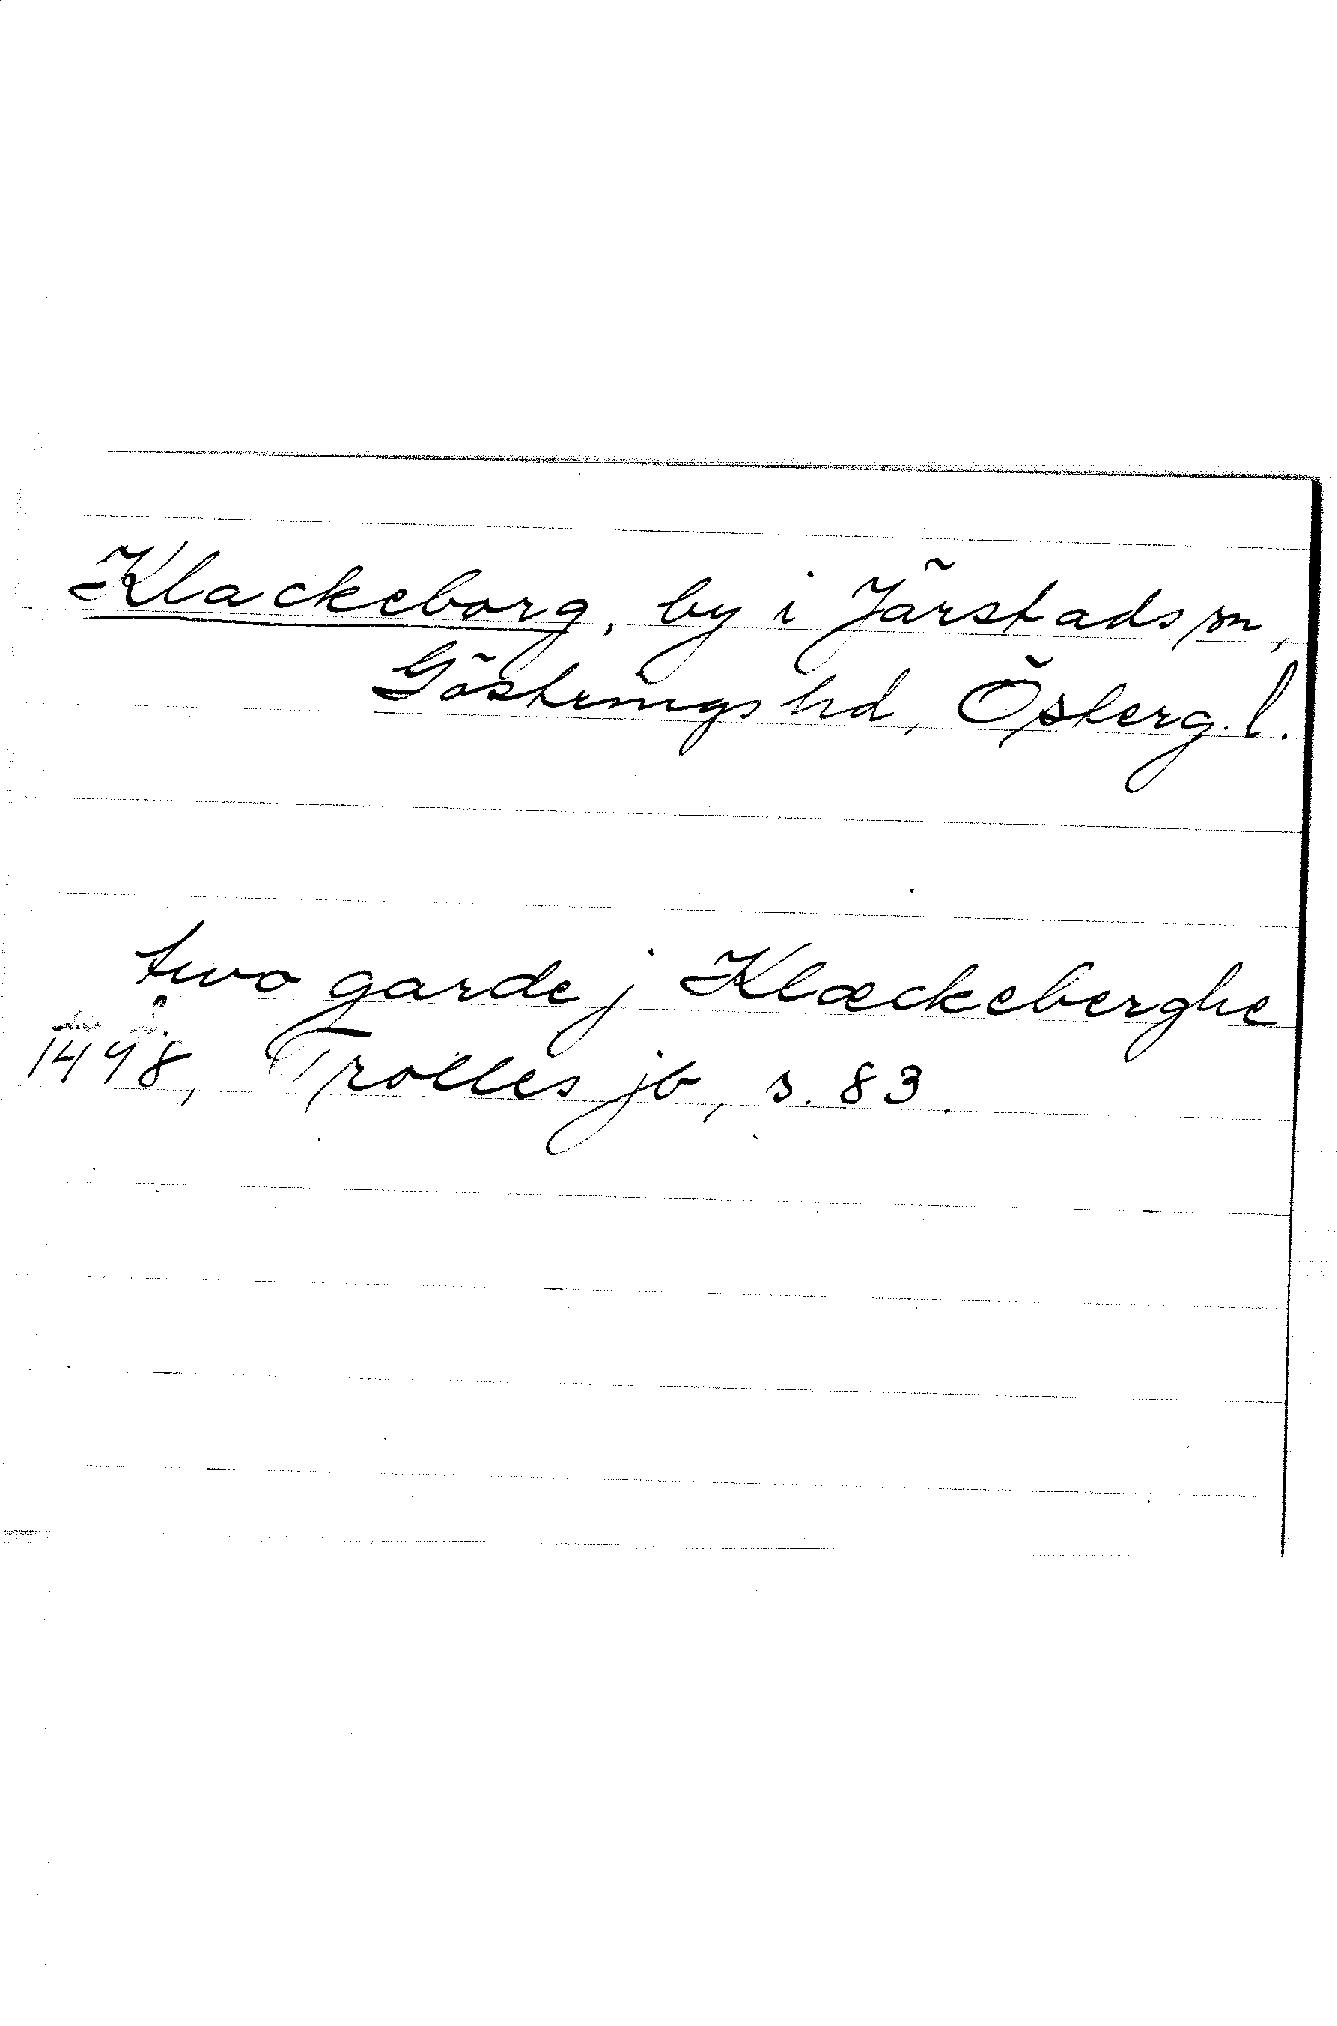 Klackeborg, by i Järstads sn,
Göstrings hd, Österg. l.
two garde j Klæckeberghe
1498, Trolles jb, s. 83.